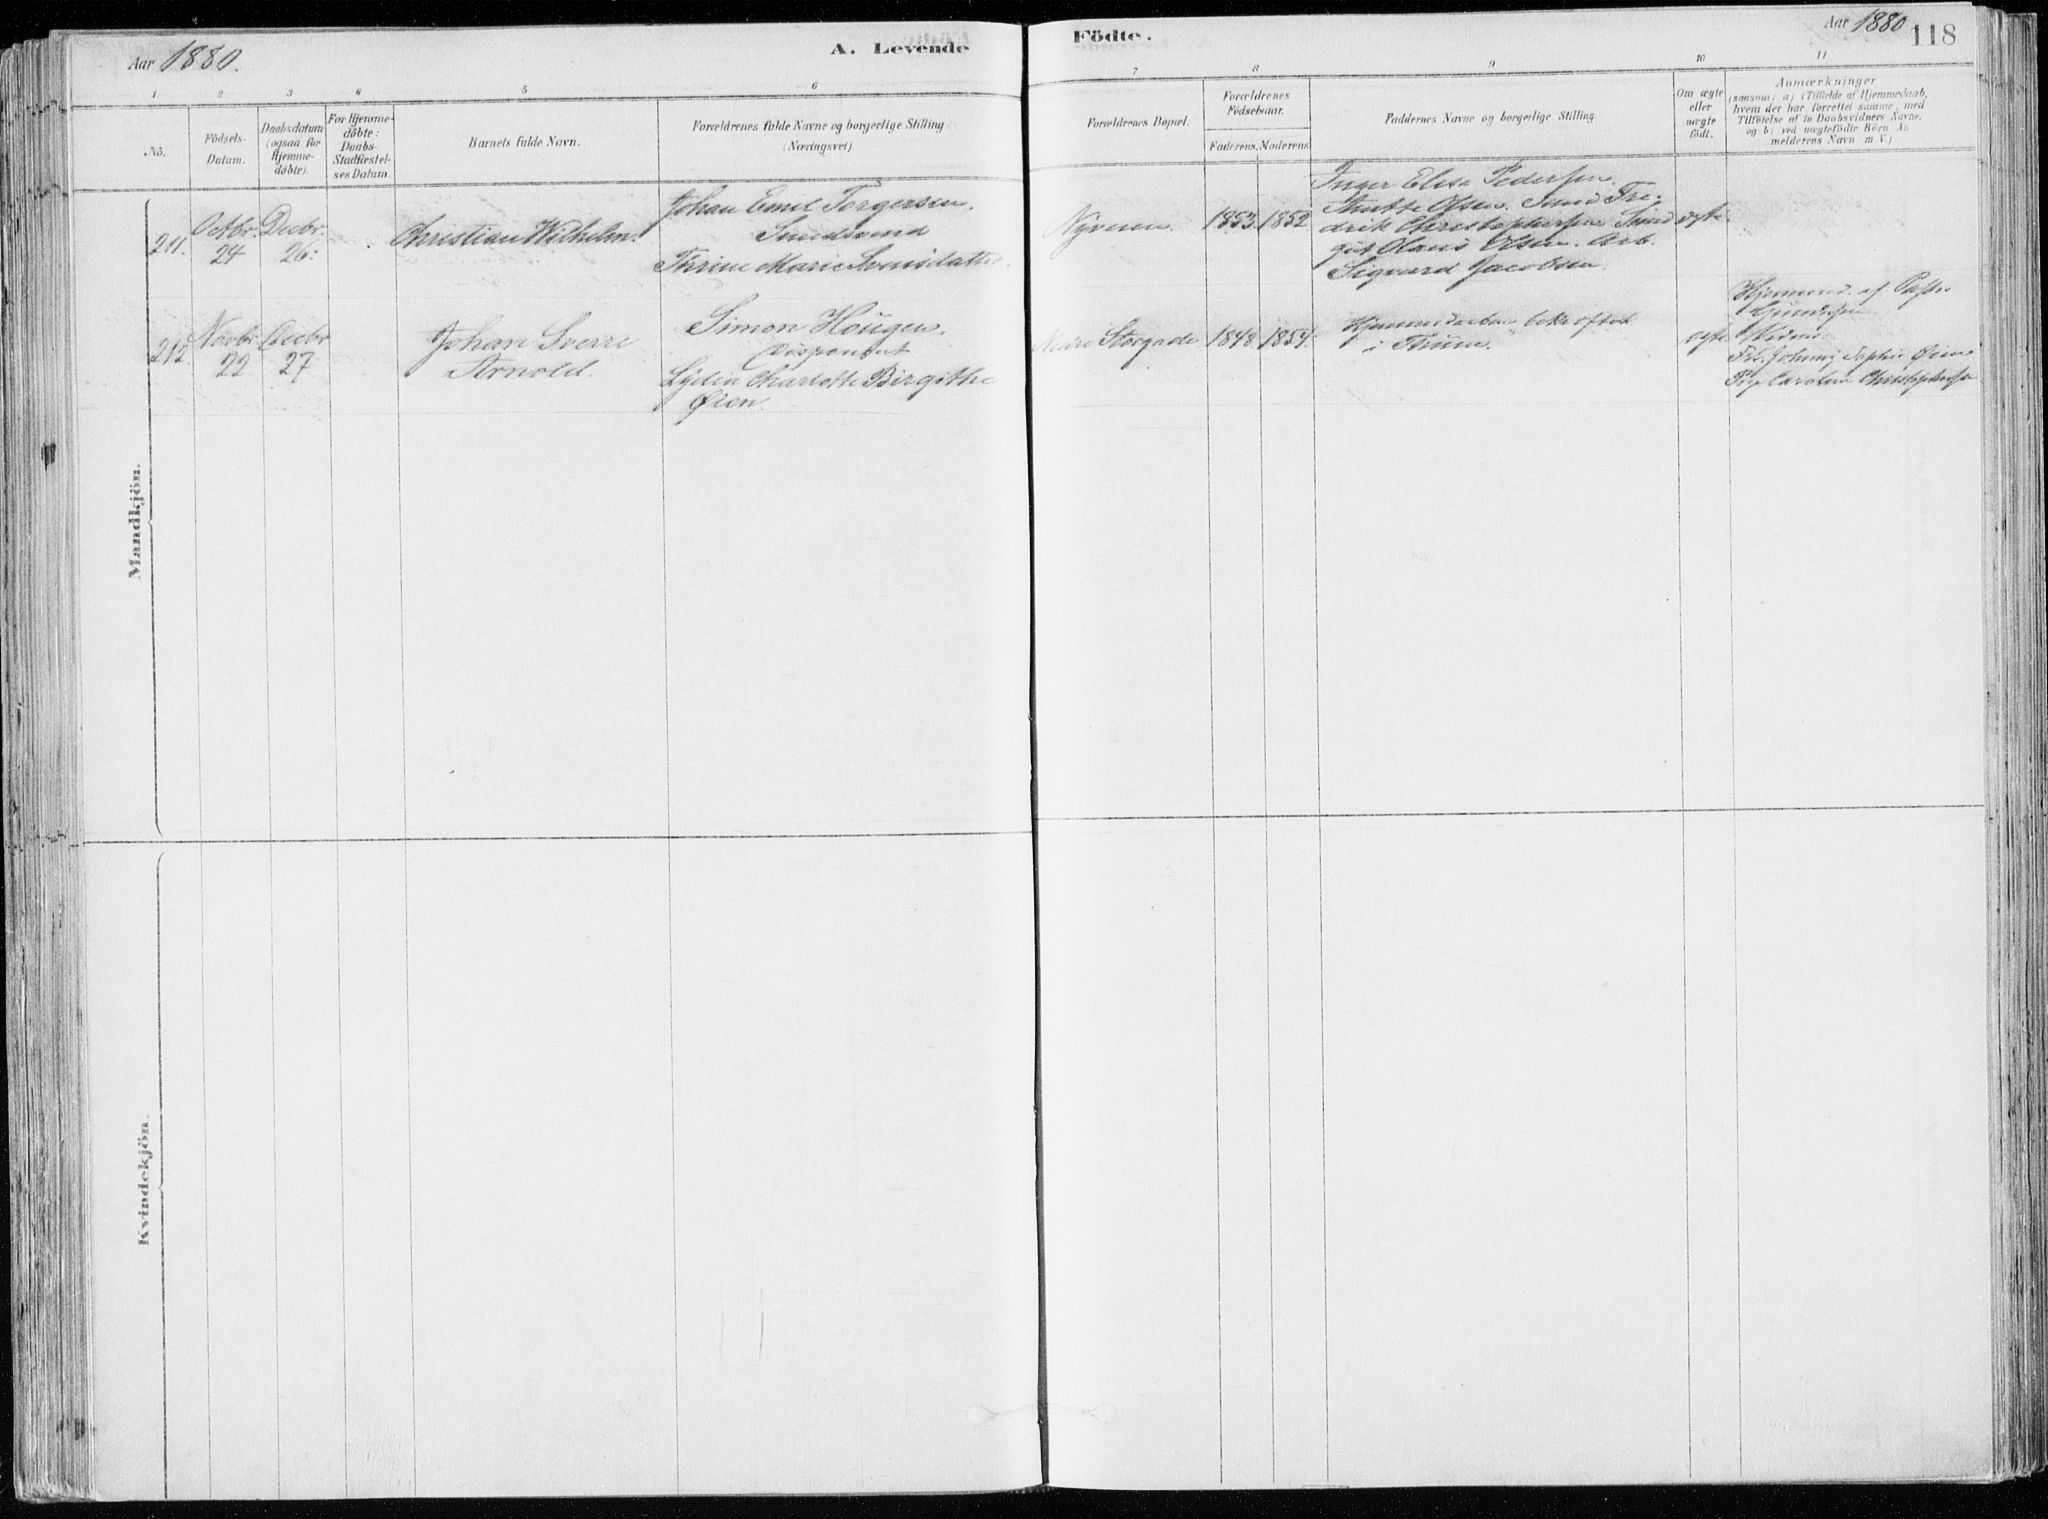 Aar 1880.
A. Levende
Födte.
Aar 1880
118
1
2
3
4
5
6
7
8
9
10
11
No.
Födsels-
Datum.
Daabsdatum
(ogsaa for
Hjemme-
döbte).
For Hjemme-
döbte:
Daabs-
Stadfæstel-
ses Datum.
Barnets fulde Navn.
Forældrenes fulde Navne og borgerlige Stilling
(Næringsvei).
Forældrenes Bopæl.
Forældrenes
Födselsaar.
Faderens.
Moderens.
Faddernes Navne og borgerlige Stilling.
Om ægte
eller
uægte
födt.
Anmærkninger
(saasom: a) i Tilfælde af Hjemmedaab,
hvem der har forrettet samme, med
Tilföielse af to Daabsvidners Navne,
og b) ved uægtefödte Börn An-
melderens Navn m. V.)
Mandkjön.
211.
Octbr.
24
Decbr.
26.
Christian Wilhelm.
Johan Emil Torgersen.
Smedsvend
Thrine Marie Svensdatter.
1853
1852
Inger Elise Pedersen.
Olsen. Smed Fre-
drik Christophersen Smed
Olaus Olsen. Arb.
Sigvard Jacobsen.
ægte
212.
Novbr.
22
Decbr
27
Johan Sverre
Arnold.
Simon Hougen.
Disponent
Lydia Charlotte Birgithe
Øien.
Nedre Storgade
1848
1854.
Hjemmedaaben bekræftet
i
ægte
af
Sophie Øien
Caroline Christophersen
Kvindekjön.